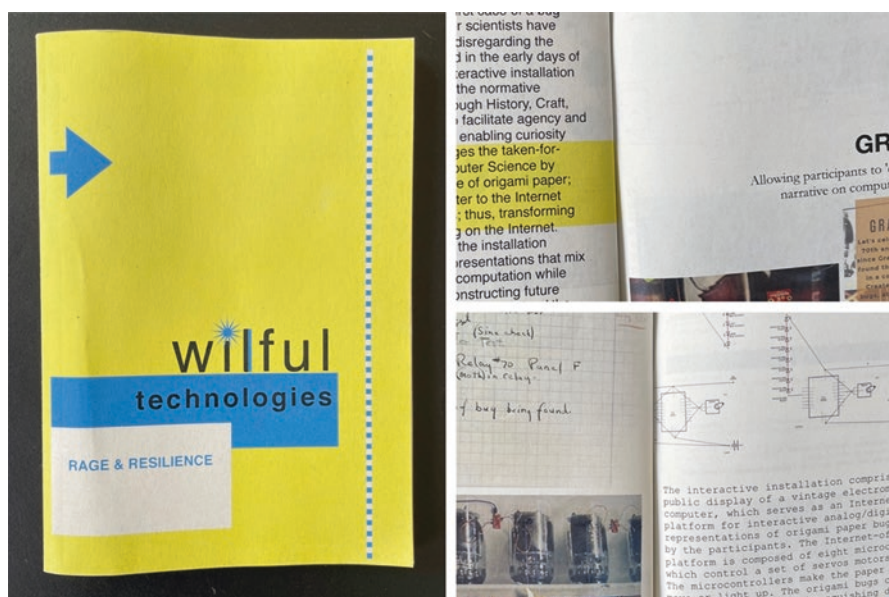 wilful
technologies
RAGE & RESILIENCE
first case of a bug
r scientists have
disregarding the
d in the early days of
teractive installation
the normative
ough History, Craft,
facilitate agency and
enabling curiosity
ges the taken-for-
puter Science by
e of origami paper;
ter to the Internet
; thus, transforming
g on the Internet.
the installation
presentations that mix
computation while
onstructing future
GR
Allowing participants to
narrative on compu
GRA
Let's cel
70th an
since Gra
found t
in a c
(Sine check)
Test
Relay #70 Panel F
(moth) in relay.
of bug being found.
The interactive installation compri
public display of a vintage electrom
computer, which serves as an Interne
platform for interactive analog/digi
representations of origami paper bug
by the participants. The Internet-of
platform is composed of eight micro
which control a set of servos motors
The microcontrollers make the paper
light up. The origami bugs